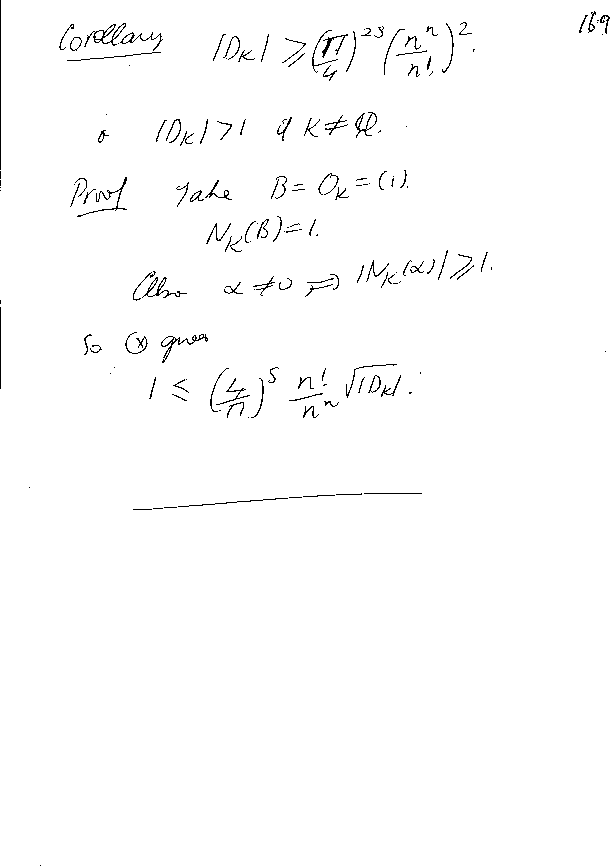 169
Corollary |D_K| ≥ (π/4)^{2s} (n^n/n!)^2.
o |D_K| > 1 if K ≠ Q.
Proof Take B = O_K = (1).
N_K(B) = 1.
Also α ≠ 0 ⇒ |N_K(α)| ≥ 1.
So (*) gives
1 ≤ (4/π)^s n!/n^n √|D_K|.